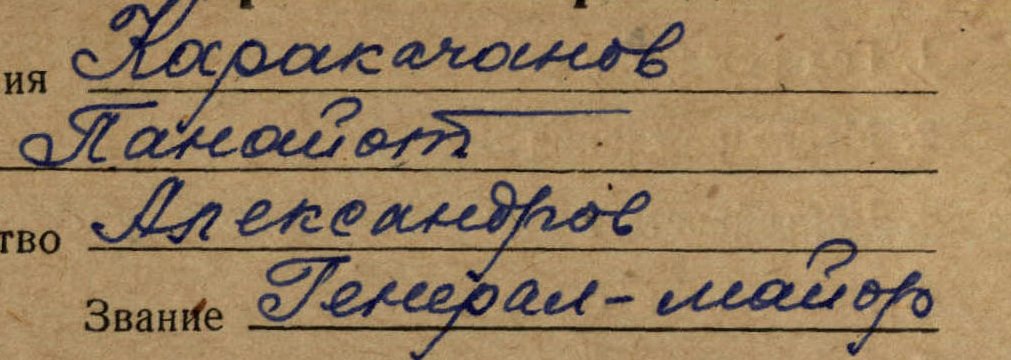 ия Каракачанов
Панайот
тво Александров
Звание Генерал-майор